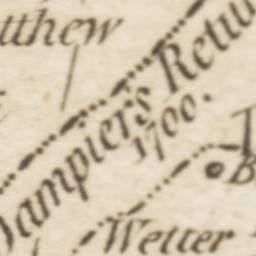 tthew
Dampiers Retu
1700.
Wetter